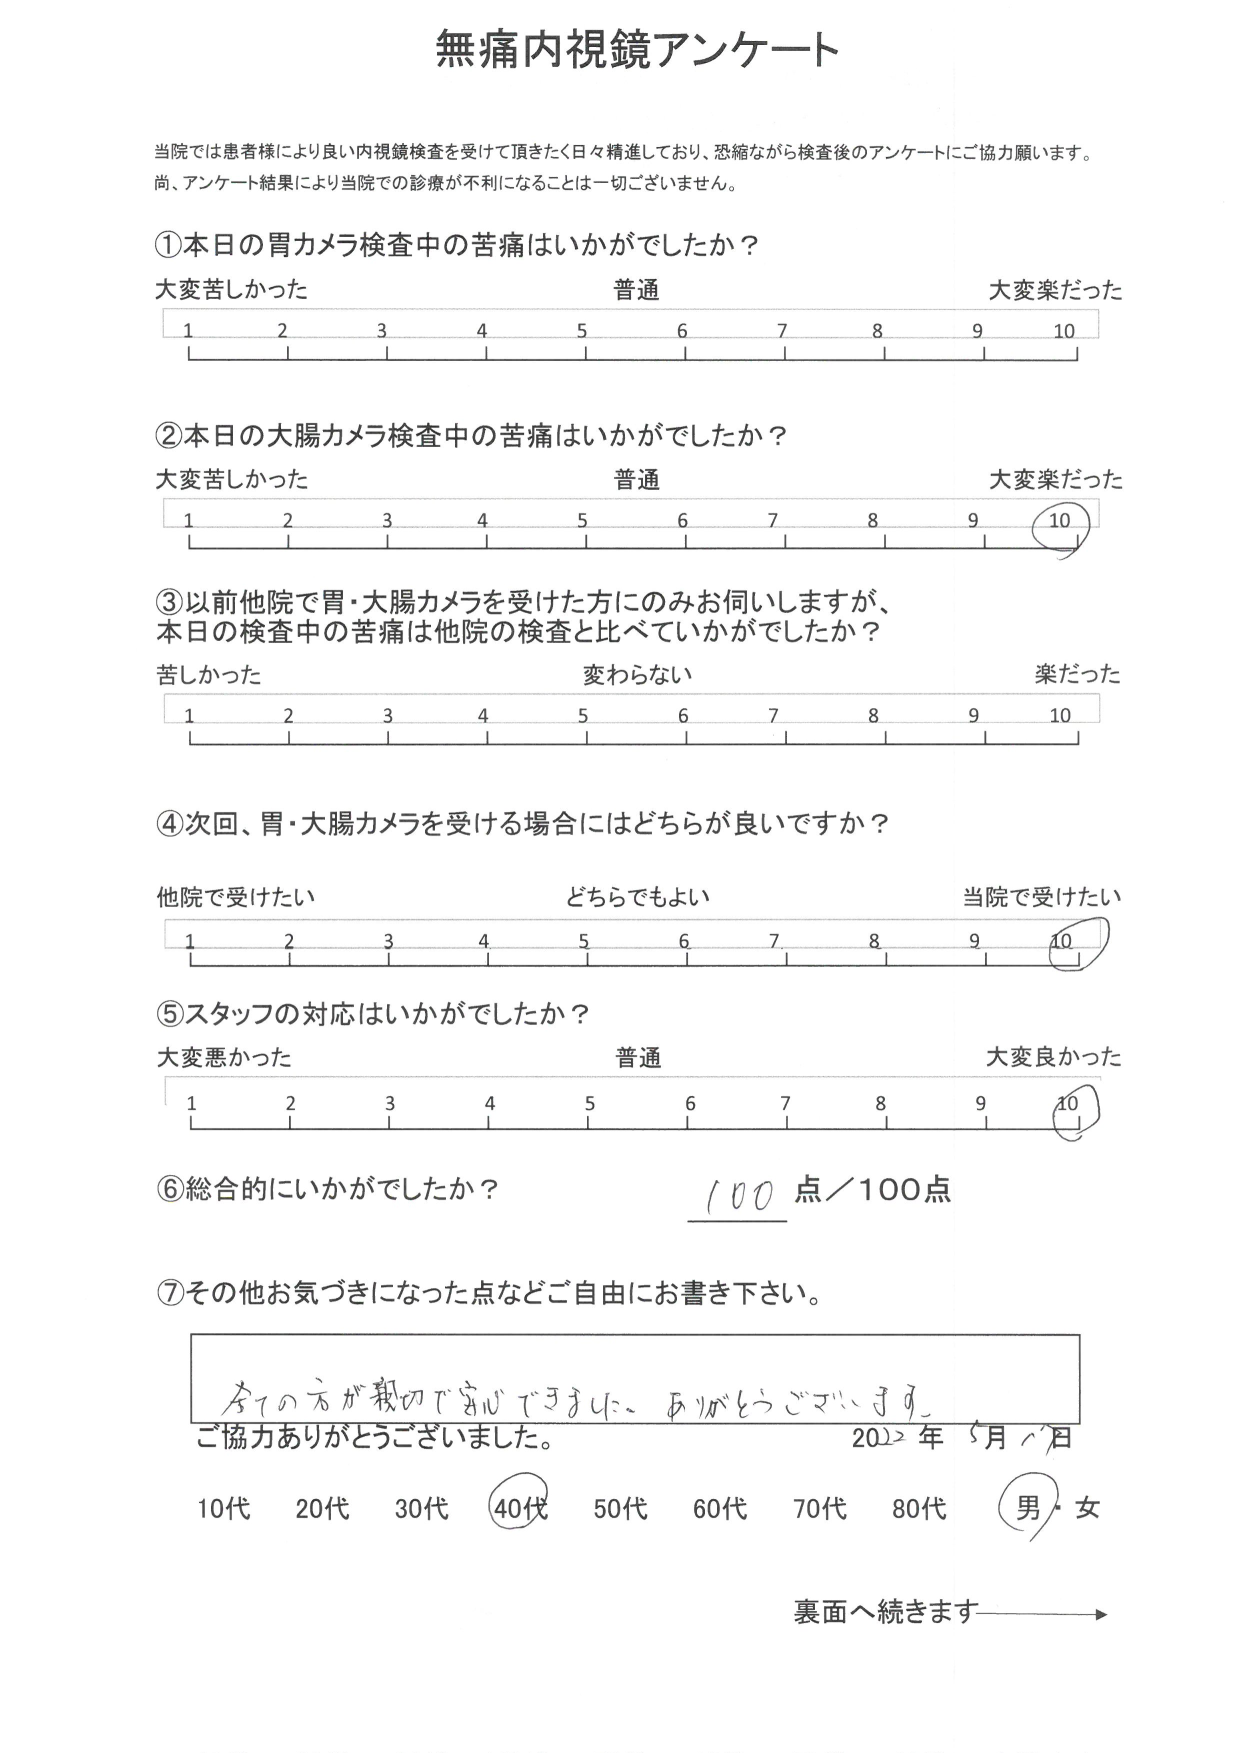 無痛内視鏡アンケート
当院では患者様により良い内視鏡検査を受けて頂きたく日々精進しており、恐縮ながら検査後のアンケートにご協力願います。
尚、アンケート結果により当院での診療が不利になることは一切ございません。
①本日の胃カメラ検査中の苦痛はいかがでしたか？
大変苦しかった 普通 大変楽だった
1 2 3 4 5 6 7 8 9 10
②本日の大腸カメラ検査中の苦痛はいかがでしたか？
大変苦しかった 普通 大変楽だった
1 2 3 4 5 6 7 8 9 10
③以前他院で胃・大腸カメラを受けた方にのみお伺いしますが、
本日の検査中の苦痛は他院の検査と比べていかがでしたか？
苦しかった 変わらない 楽だった
1 2 3 4 5 6 7 8 9 10
④次回、胃・大腸カメラを受ける場合にはどちらが良いですか？
他院で受けたい どちらでもよい 当院で受けたい
1 2 3 4 5 6 7 8 9 10
⑤スタッフの対応はいかがでしたか？
大変悪かった 普通 大変良かった
1 2 3 4 5 6 7 8 9 10
⑥総合的にいかがでしたか？ 100 点／100点
⑦その他お気づきになった点などご自由にお書き下さい。
全ての方が親切で安心できました。ありがとうございます。
ご協力ありがとうございました。 2022年 5月 日
10代 20代 30代 40代 50代 60代 70代 80代 男・女
裏面へ続きます